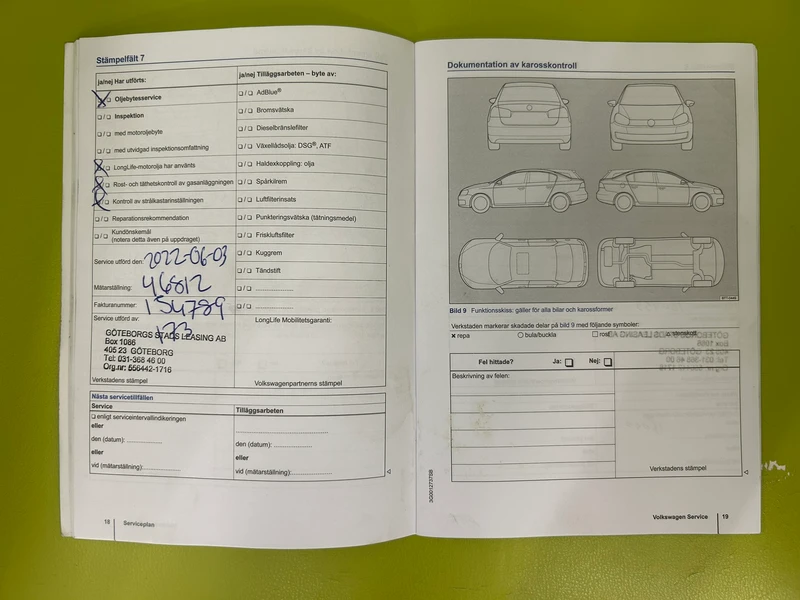 Stämpelfält 7
ja/nej Har utförts:
ja/nej Tilläggsarbeten – byte av:
Oljebytesservice
AdBlue®
Inspektion
Bromsvätska
med motoroljebyte
Dieselbränslefilter
med utvidgad inspektionsomfattning
Växellådsolja: DSG®, ATF
LongLife-motorolja har använts
Haldexkoppling: olja
Rost- och täthetskontroll av gasanläggningen
Spårkilrem
Kontroll av strålkastarinställningen
Luftfilterinsats
Reparationsrekommendation
Punkteringsvätska (tätningsmedel)
Kundönskemål
(notera detta även på uppdraget)
Friskluftsfilter
Kuggrem
Service utförd den: 2022-06-03
Tändstift
Mätarställning: 46812
Fakturanummer: 154789
Service utförd av: 173
LongLife Mobilitetsgaranti:
GÖTEBORGS STADS LEASING AB
Box 1086
405 23 GÖTEBORG
Tel: 031-368 46 00
Org.nr: 556442-1716
Verkstadens stämpel
Volkswagenpartnerns stämpel
Nästa servicetillfällen
Service
Tilläggsarbeten
enligt serviceintervallindikeringen
eller
den (datum): ....................
den (datum): ....................
eller
eller
vid (mätarställning):....................
vid (mätarställning):....................
18 Serviceplan
Dokumentation av karosskontroll
Bild 9 Funktionsskiss: gäller för alla bilar och karossformer
Verkstaden markerar skadade delar på bild 9 med följande symboler:
x repa
bula/buckla
rost
stenskott
Fel hittade?
Ja:
Nej:
Beskrivning av felen:
Verkstadens stämpel
3G0012737DB
Volkswagen Service 19